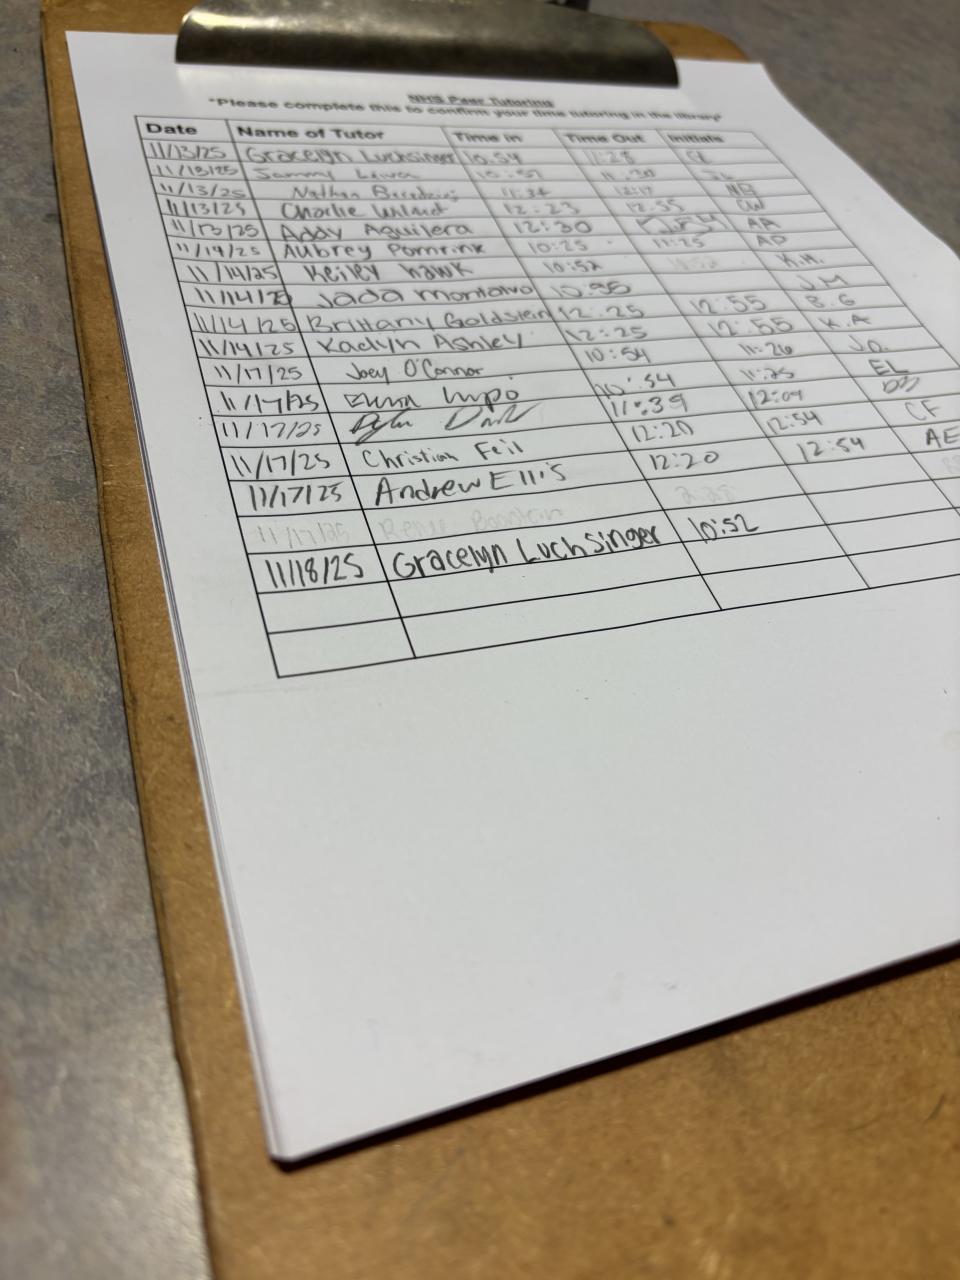 NHS Peer Tutoring
*Please complete this to confirm your time tutoring in the library*
Date Name of Tutor Time In Time Out Initials
11/13/25 Gracelyn Luchsinger 10:54 11:25
11/13/25 Sammy
11/13/25 Nathan 11:34 12:17 NB
11/13/25 Charlie 12:23 12:55 CW
11/13/25 Addy Aguilera 12:30 AA
11/14/25 Aubrey 10:25 11:25 AP
11/14/25 Keiley Hawk 10:52 K.H.
11/14/25 Jada Montalvo J.M
11/14/25 Brittany Goldstein 12:25 12:55 B.G
11/14/25 Kaelyn Ashley 12:25 12:55 K.A
11/17/25 Joey O'Connor 10:54 11:26 J.O.
11/17/25 Emma Lupo 10:54 11:25 EL
11/17/25 11:39 12:04
11/17/25 Christian Feil 12:20 12:54 CF
11/17/25 Andrew Ellis 12:20 12:54 AE
11/17/25
11/18/25 Gracelyn Luchsinger 10:52